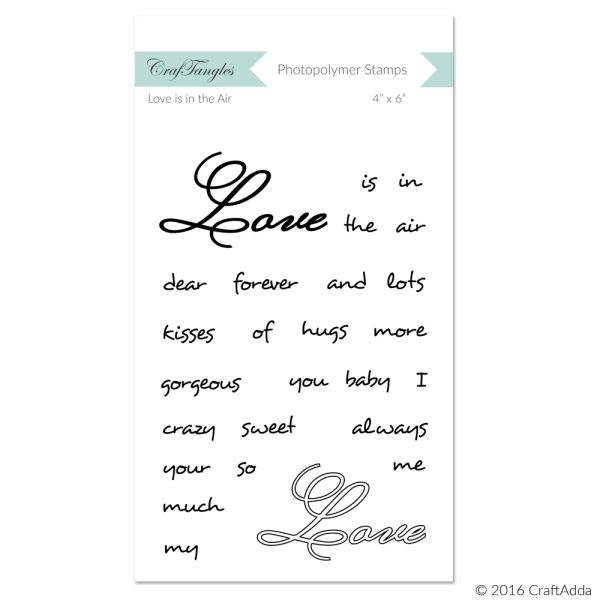 CrafTangles Photopolymer Stamps
Love is in the Air 4" x 6"
Love is in
the air
dear forever and lots
kisses of hugs more
gorgeous you baby I
crazy sweet always
your so me
much Love
my
© 2016 CraftAdda